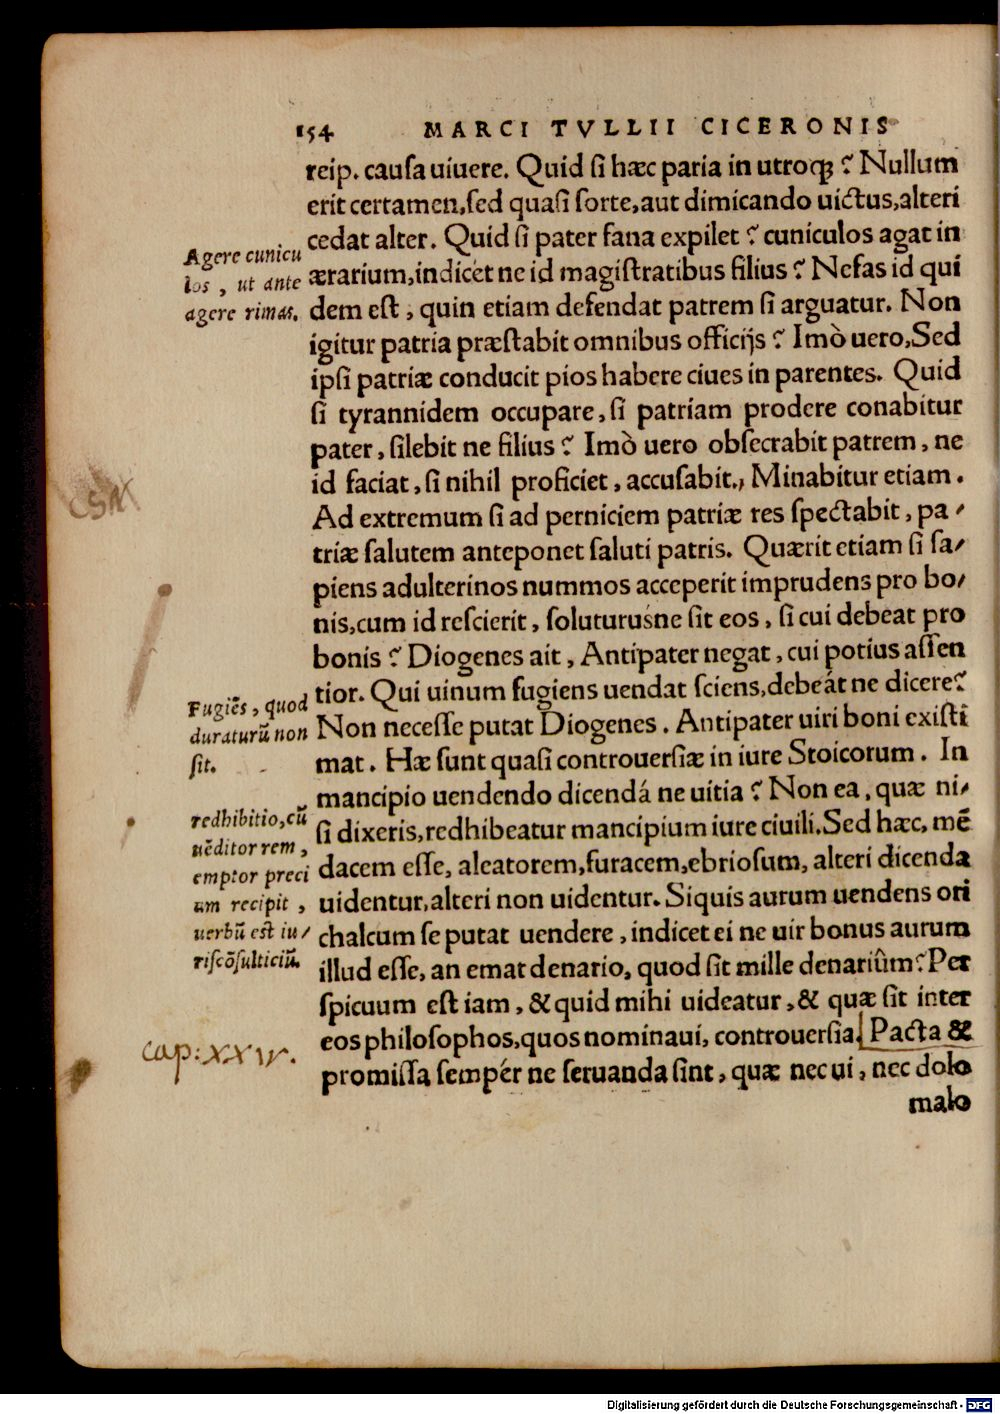 154 MARCI TVLLII CICERONIS
reip. causa uiuere. Quid si hæc paria in utroqꝫ? Nullum
erit certamen, sed quasi sorte, aut dimicando uictus, alteri
cedat alter. Quid si pater fana expilet? cuniculos agat in
ærarium, indicet ne id magistratibus filius? Nefas id qui
dem est, quin etiam defendat patrem si arguatur. Non
igitur patria præstabit omnibus officijs? Imò uero, Sed
ipsi patriæ conducit pios habere ciues in parentes. Quid
si tyrannidem occupare, si patriam prodere conabitur
pater, silebit ne filius? Imò uero obsecrabit patrem, ne
id faciat, si nihil proficiet, accusabit., Minabitur etiam.
Ad extremum si ad perniciem patriæ res spectabit, pa/
triæ salutem anteponet saluti patris. Quærit etiam si sa/
piens adulterinos nummos acceperit imprudens pro bo/
nis, cum id rescierit, soluturusne sit eos, si cui debeat pro
bonis? Diogenes ait, Antipater negat, cui potius assen
tior. Qui uinum fugiens uendat sciens, debeát ne dicere?
Non necesse putat Diogenes. Antipater uiri boni existi
mat. Hæ sunt quasi controuersiæ in iure Stoicorum. In
mancipio uendendo dicendá ne uitia? Non ea, quæ ni/
si dixeris, redhibeatur mancipium iure ciuili. Sed hæc, mē
dacem esse, aleatorem, furacem, ebriosum, alteri dicenda
uidentur, alteri non uidentur. Siquis aurum uendens ori
chalcum se putat uendere, indicet ei ne uir bonus aurum
illud esse, an emat denario, quod sit mille denariûm? Per
spicuum est iam, & quid mihi uideatur, & quæ sit inter
eos philosophos, quos nominaui, controuersia. Pacta &
promissa sempér ne seruanda sint, quæ nec ui, nec dolo
malo
Agere cunicu
los, ut ante
agere rimas.
Fugiēs, quod
duraturū non
sit.
redhibitio, cū
uēditor rem,
emptor preci
um recipit,
uerbū est iu/
riscōsulticiū.
cap: XXIV.
Digitalisierung gefördert durch die Deutsche Forschungsgemeinschaft - DFG